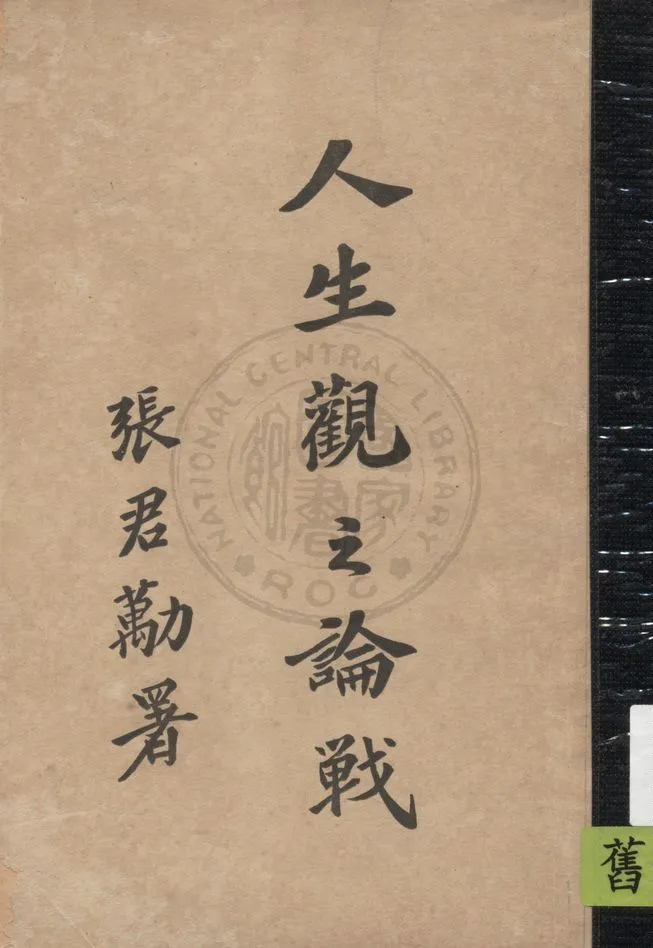 人生觀之論戰
張君勱署
NATIONAL CENTRAL LIBRARY
ROC
國家圖書館
舊